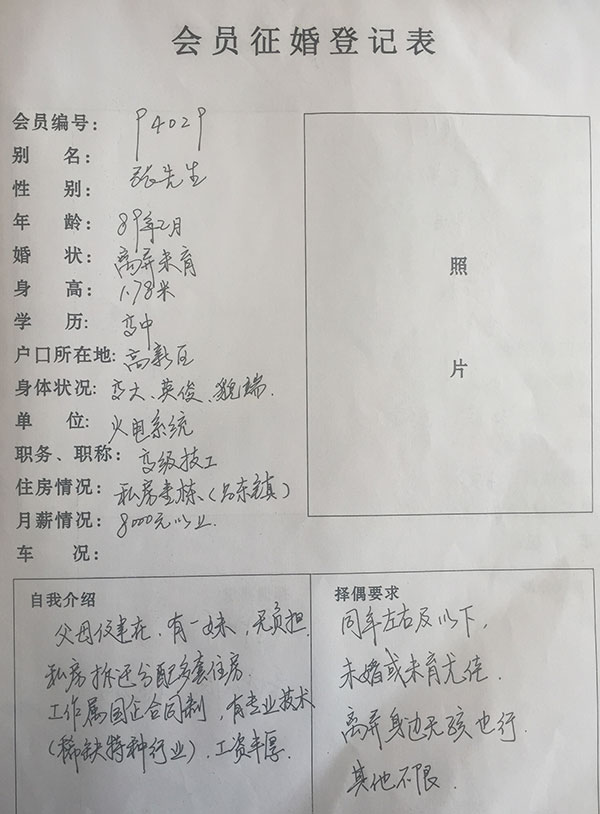 会员征婚登记表
会员编号: 94029
别 名: 张先生
性 别:
年 龄: 89年2月
婚 状: 离异未育
身 高: 1.78米
学 历: 高中
户口所在地: 高新区
身体状况: 高大、英俊、貌端.
单 位: 火电系统
职务、职称: 高级技工
住房情况: 私房壹栋、(吕东镇)
月薪情况: 8000元以上.
车 况:
照
片
自我介绍
父母健在,有一妹,无负担.
私房拆迁分配多套住房.
工作属国企合同制,有专业技术
(稀缺特种行业).工资丰厚.
择偶要求
同年左右及以下,
未婚或未育尤佳.
离异身边无孩也行.
其他不限.